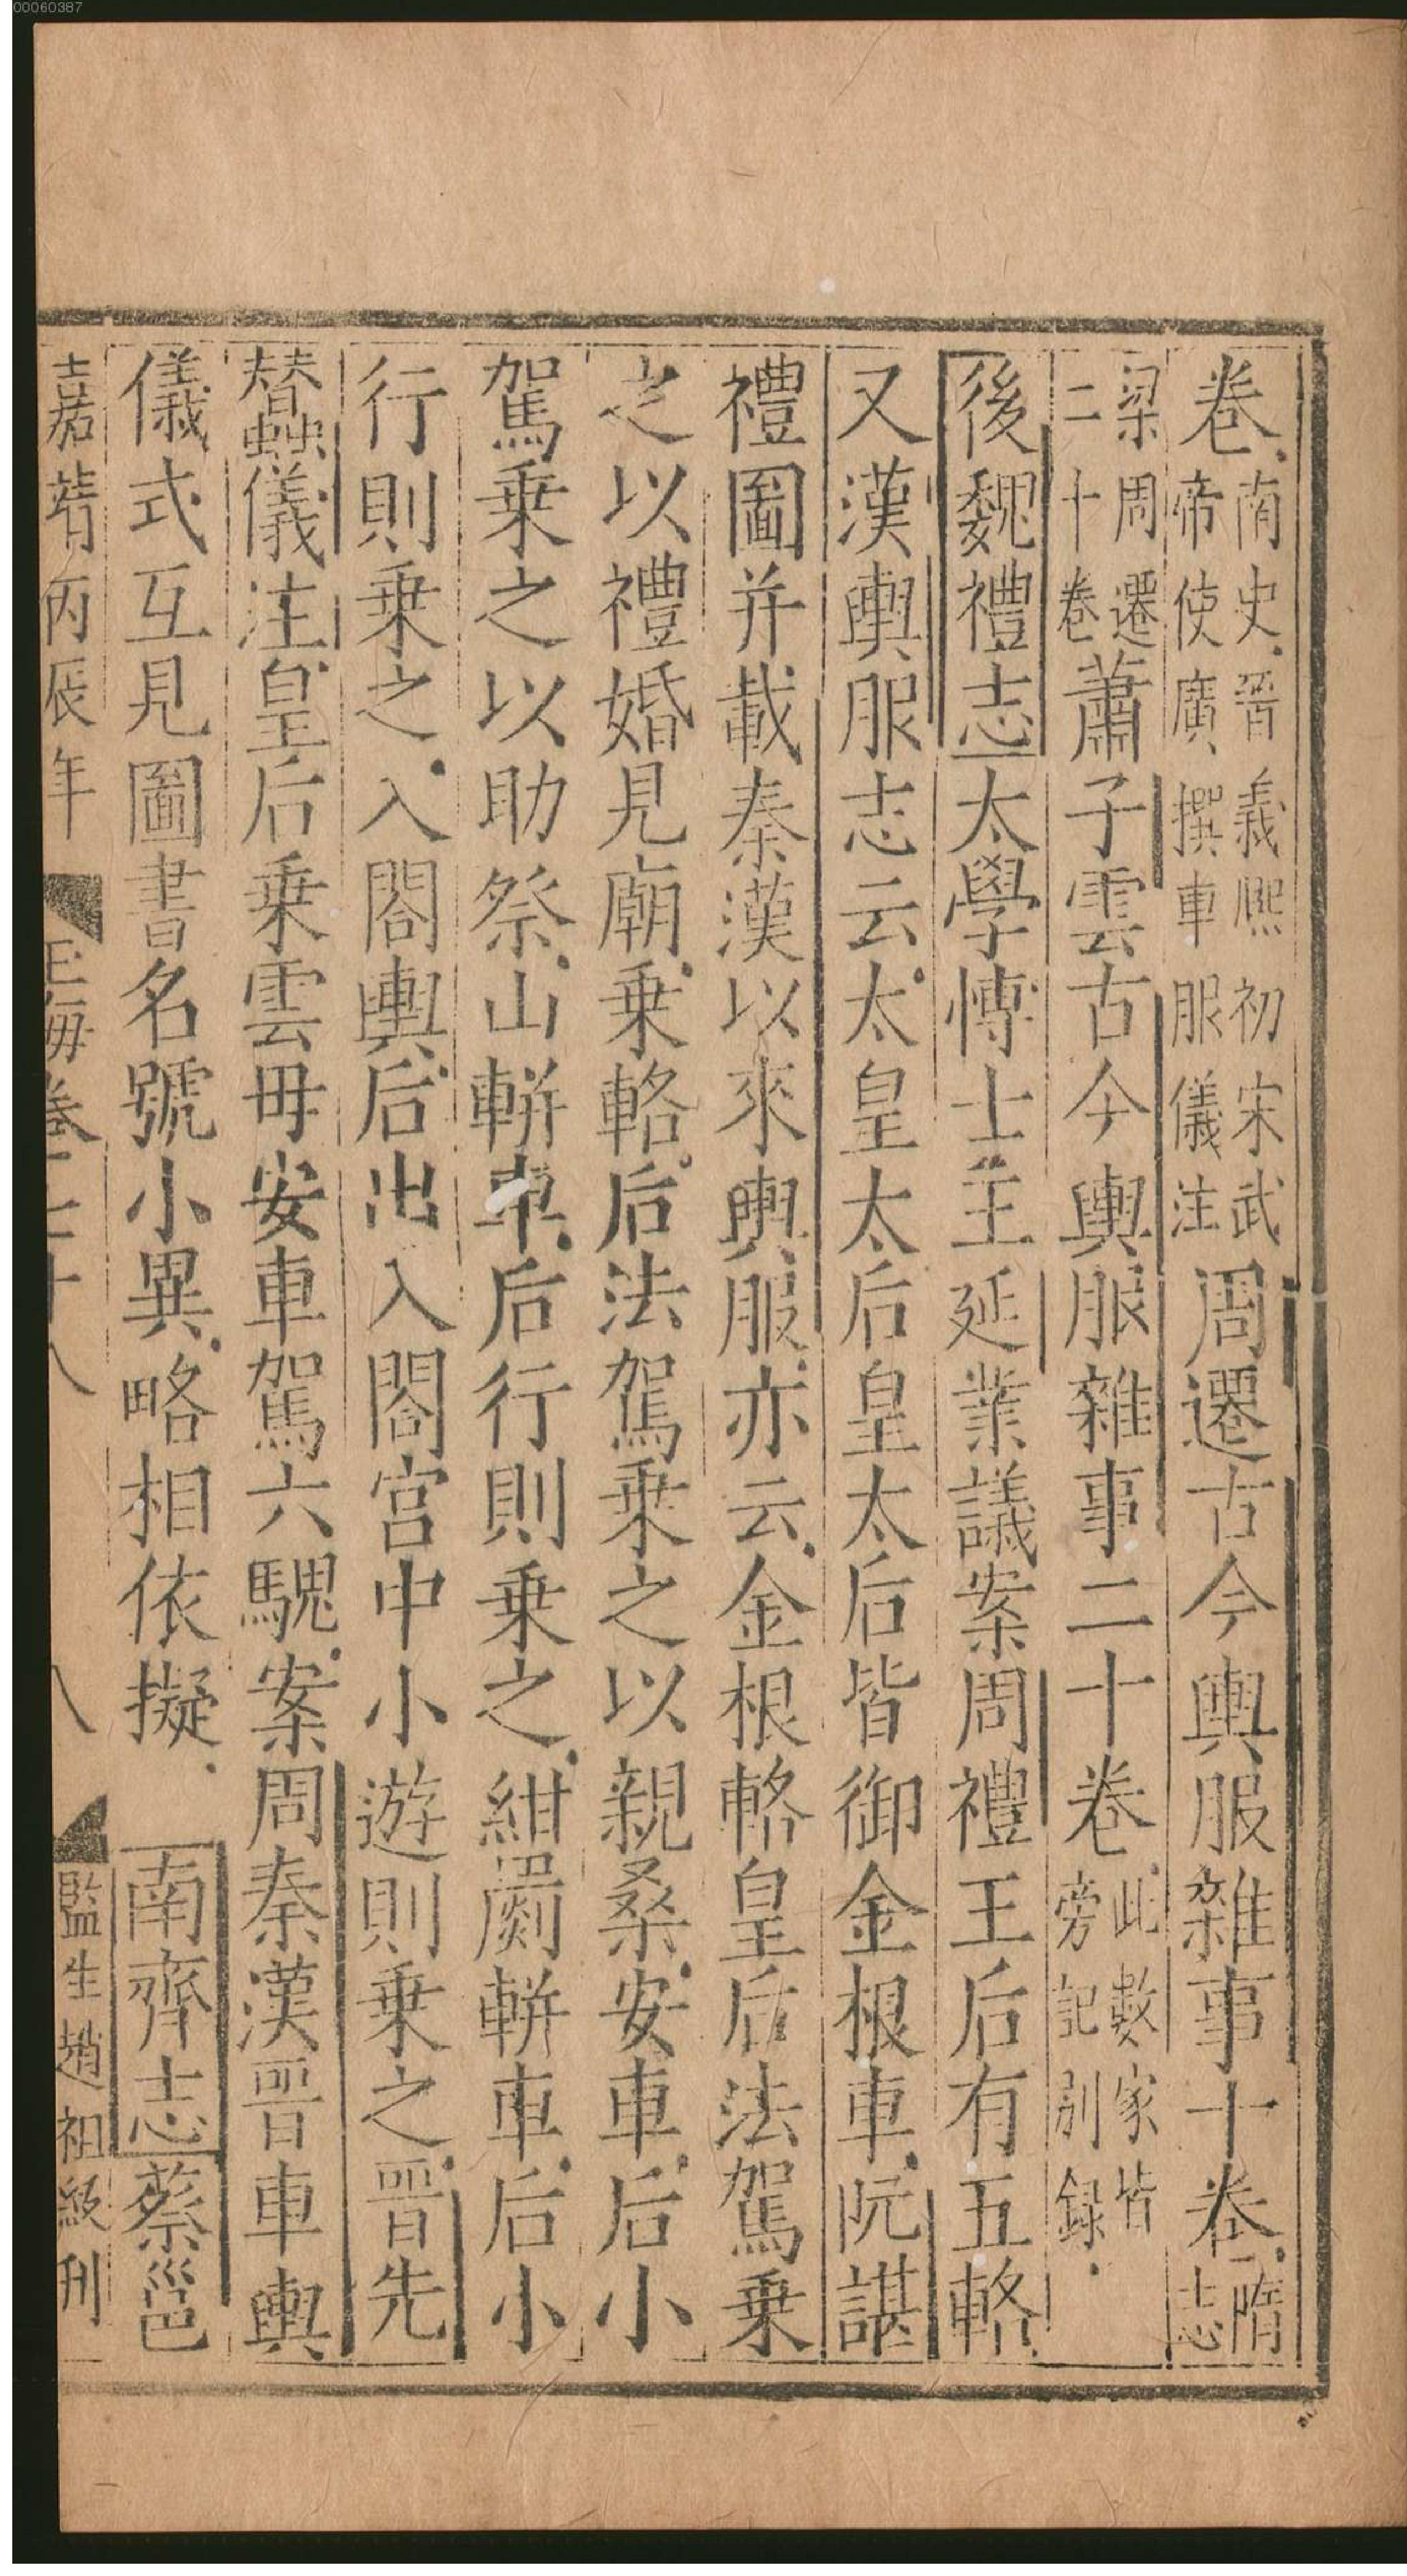 00060387
卷南史晉義熙初宋武帝使廣撰車服儀注周遷古今輿服雜事十卷隋志
梁周遷二十卷蕭子雲古今輿服雜事二十卷此數家皆旁記別録
後魏禮志太學博士王延業議案周禮王后有五輅
又漢輿服志云太皇太后皇太后皆御金根車阮諶
禮圖并載秦漢以來輿服亦云金根輅皇后法駕乗
之以禮婚見廟乗輅后法駕乗之以親桑安車后小
駕乗之以助祭山軿車后行則乗之紺罽軿車后小
行則乗之入閤輿后出入閤宮中小遊則乗之晉先
蠶儀注皇后乗雲母安車駕六騩案周秦漢晉車輿
儀式互見圖書名號小異略相依擬南齊志蔡邕
嘉靖丙辰年 玉海卷七十八 八 監生趙祖級刊